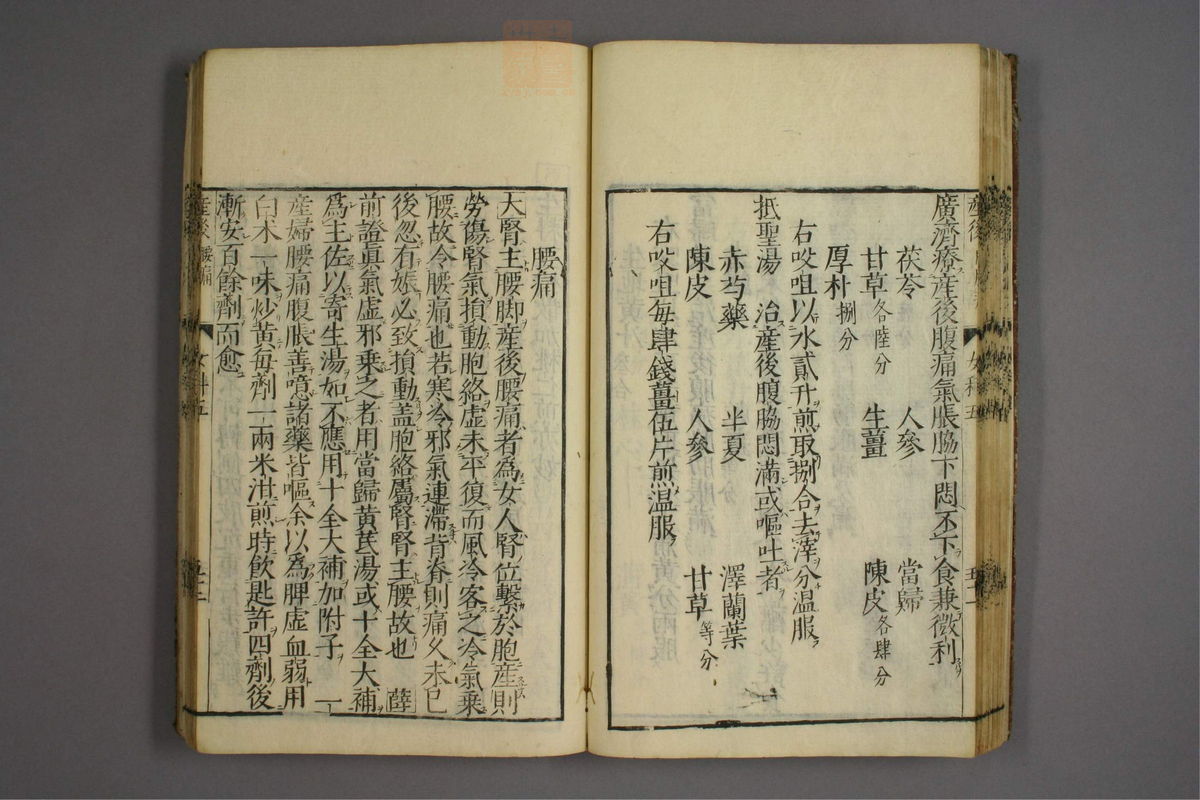 廣濟療産後腹痛氣脹脇下悶不下食兼微利
茯苓　人參　當歸
甘草各陸分　生薑　陳皮各肆分
厚朴捌分
右㕮咀以水貳升煎取捌合去滓分温服
抵聖湯　治産後腹脇悶滿或嘔吐者
赤芍藥　半夏　澤蘭葉
陳皮　人參　甘草等分
右㕮咀每肆錢薑伍片煎温服
腰痛
大腎主腰脚産後腰痛者為女人腎位繫於胞産則
勞傷腎氣損動胞絡虚未平復而風冷客之冷氣乗
腰故令腰痛也若寒冷邪氣連滯背脊則痛久未已
後忽有娠必致損動盖胞絡屬腎腎主腰故也　薛
前證真氣虚邪乗之者用當歸黄芪湯或十全大補
爲主佐以寄生湯如不應用十全大補加附子　一
産婦腰痛腹脹善噫諸藥皆嘔余以爲脾虚血弱用
白术一味炒黄每劑一兩米泔煎時飲匙許四劑後
漸安百餘劑而愈
産後　腰痛　女科五